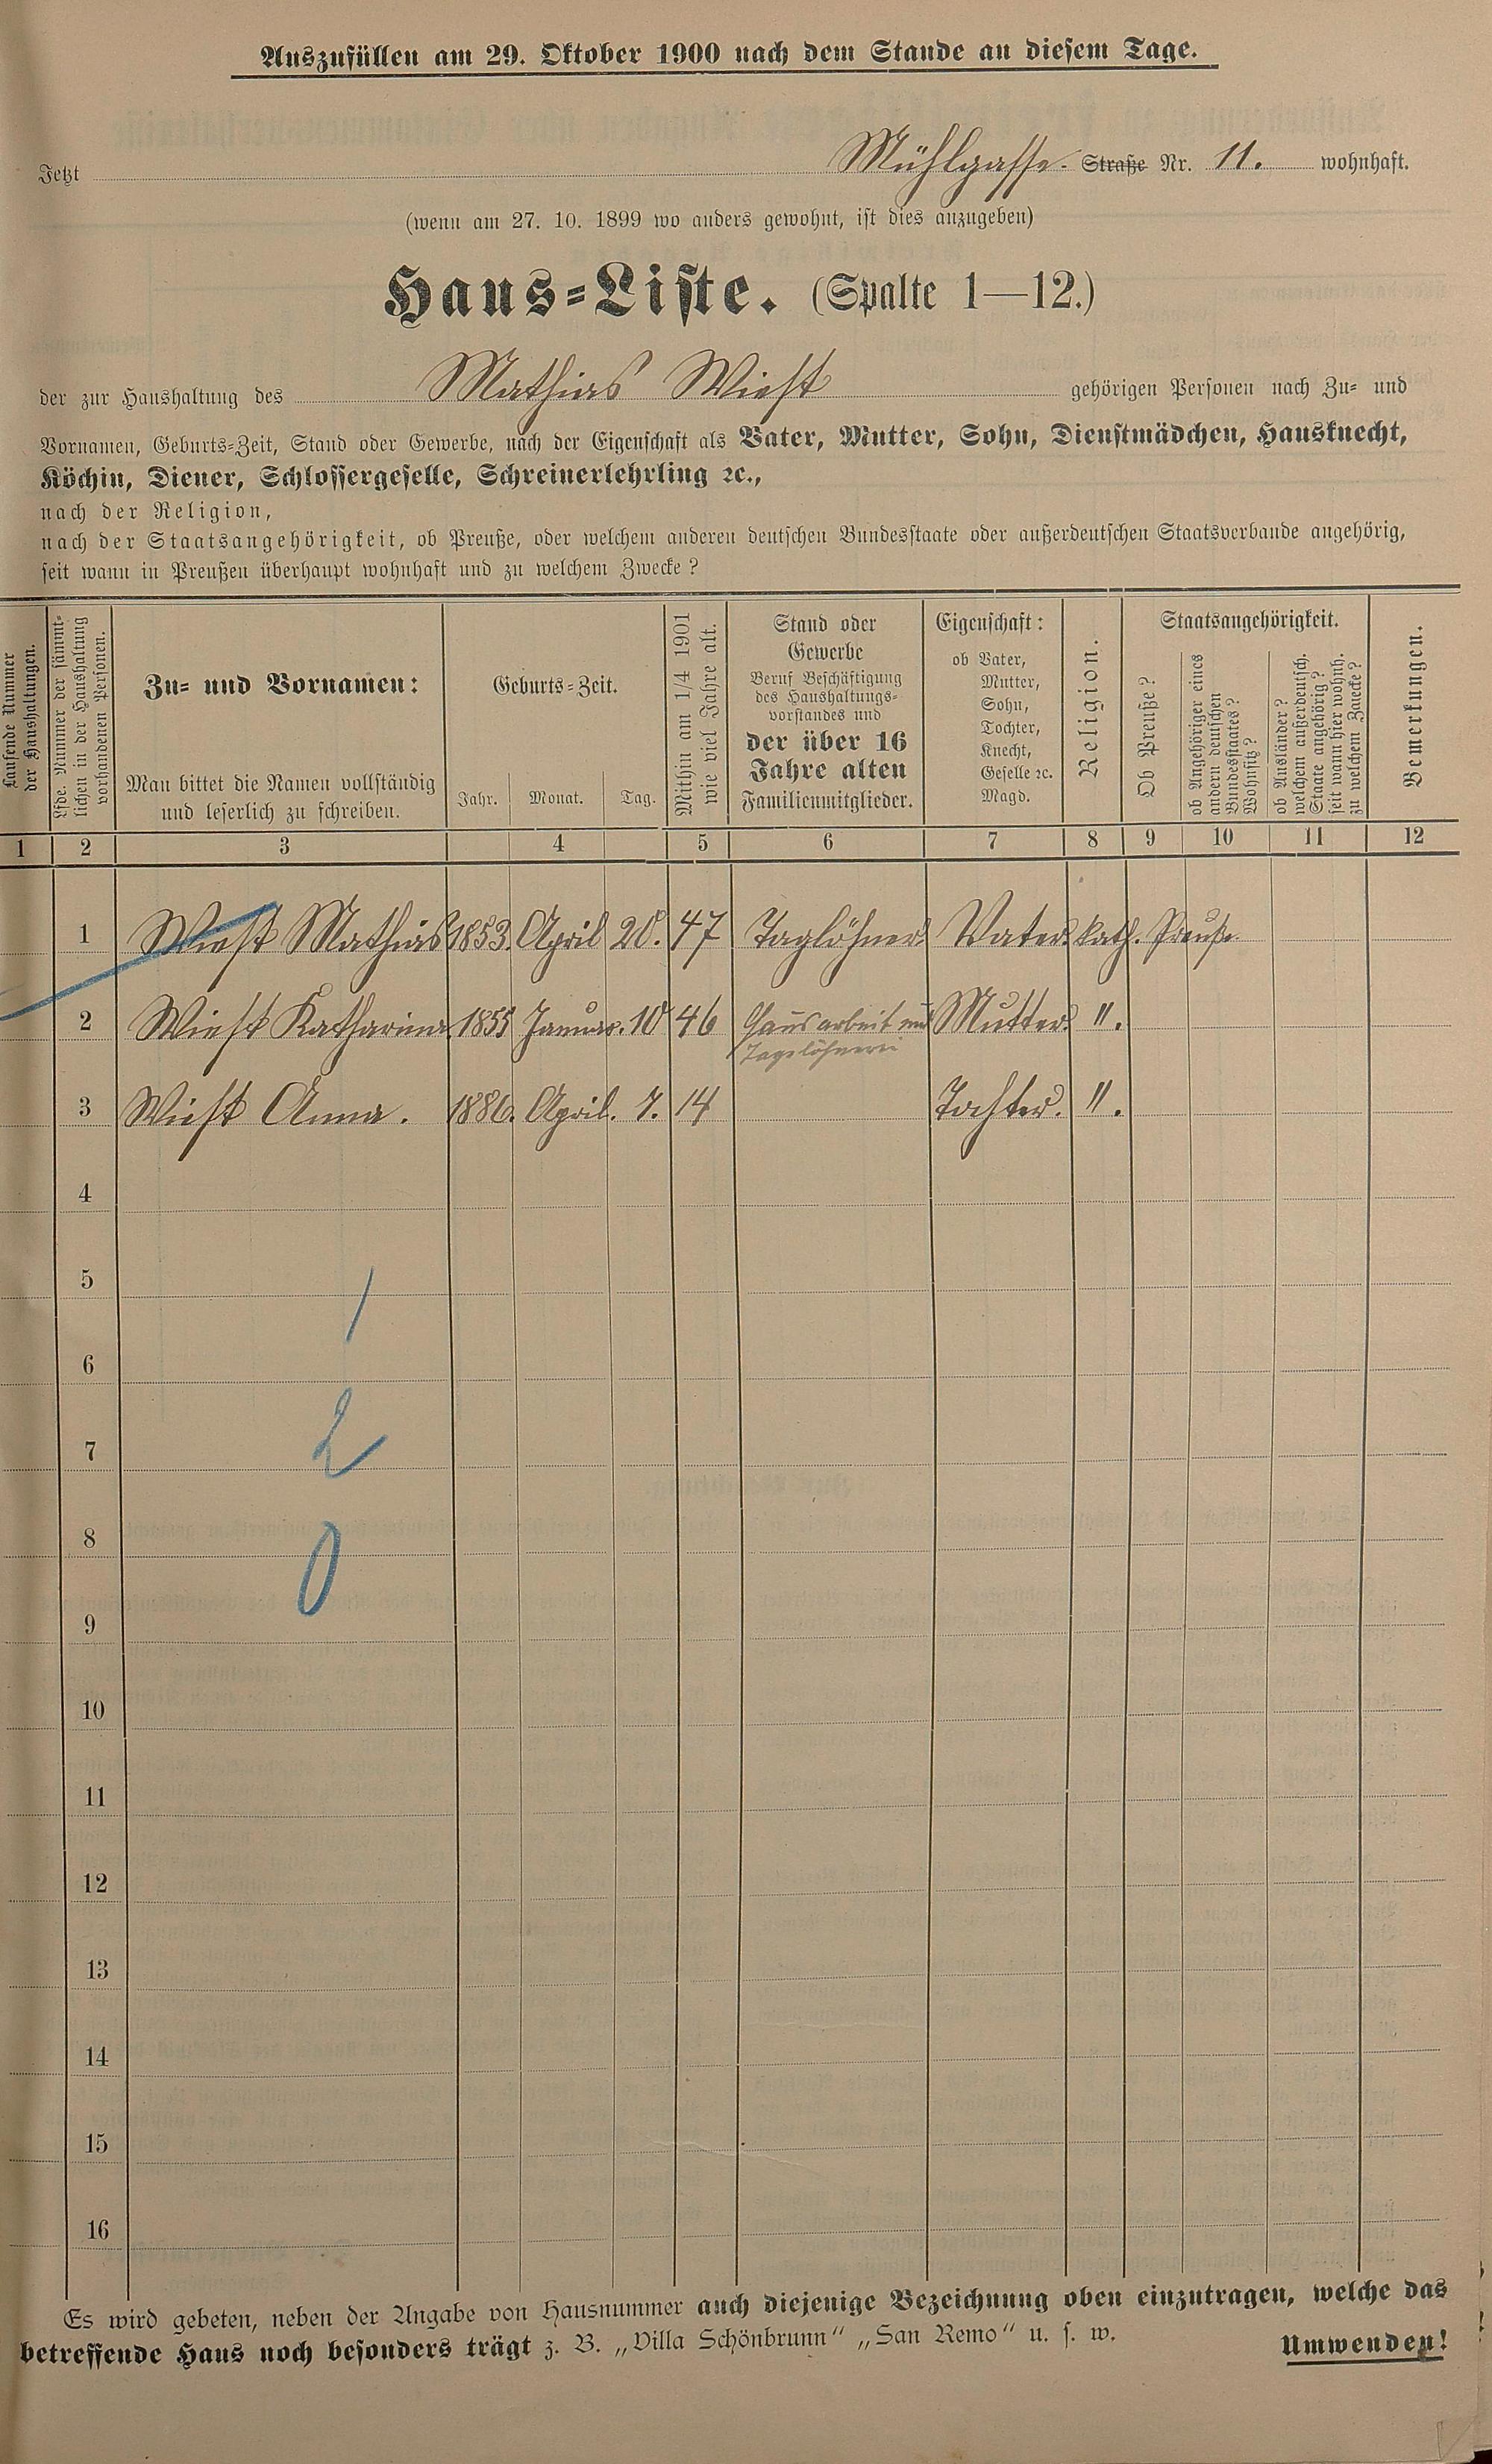 Auszufüllen am 29. Oktober 1900 nach dem Stande an diesem Tage.
Jetzt Mühlgasse. Straße Nr. 11. wohnhaft.
(wenn am 27. 10. 1899 wo anders gewohnt, ist dies anzugeben)
Haus-Liste. (Spalte 1—12.)
der zur Haushaltung des Mathias Wiest gehörigen Personen nach Zu- und
Vornamen, Geburts-Zeit, Stand oder Gewerbe, nach der Eigenschaft als Vater, Mutter, Sohn, Dienstmädchen, Hausknecht,
Köchin, Diener, Schlossergeselle, Schreinerlehrling ꝛc.,
nach der Religion,
nach der Staatsangehörigkeit, ob Preuße, oder welchem anderen deutschen Bundesstaate oder außerdeutschen Staatsverbande angehörig,
seit wann in Preußen überhaupt wohnhaft und zu welchem Zwecke?
Laufende Nummer
der Haushaltungen.
Lfde. Nummer der sämmt-
lichen in der Haushaltung
vorhandenen Personen.
Zu- und Vornamen:
Man bittet die Namen vollständig
und leserlich zu schreiben.
Geburts-Zeit.
Jahr. Monat. Tag.
Mithin am 1/4 1901
wie viel Jahre alt.
Stand oder
Gewerbe
Beruf Beschäftigung
des Haushaltungs-
vorstandes und
der über 16
Jahre alten
Familienmitglieder.
Eigenschaft:
ob Vater,
Mutter,
Sohn,
Tochter,
Knecht,
Geselle ꝛc.
Magd.
Religion.
Staatsangehörigkeit.
Ob Preuße?
ob Angehöriger eines
andern deutschen
Bundesstaates?
Wohnsitz?
ob Ausländer?
welchem außerdeutsch.
Staate angehörig?
seit wann hier wohnh.
zu welchem Zwecke?
Bemerkungen.
1 2 3 4 5 6 7 8 9 10 11 12
1 Wiest Mathias 1853. April 20. 47 Taglöhner Vater kath. Preuße.
2 Wiest Katharina 1855 Januar. 10 46 Hausarbeit und Mutter ".
Tagelöhnerei
3 Wiest Anna. 1886. April. 7. 14 Tochter. ".
4
5
1
6
7
2
8
0
9
10
11
12
13
14
15
16
Es wird gebeten, neben der Angabe von Hausnummer auch diejenige Bezeichnung oben einzutragen, welche das
betreffende Haus noch besonders trägt z. B. „Villa Schönbrunn“ „San Remo“ u. s. w. Umwenden!